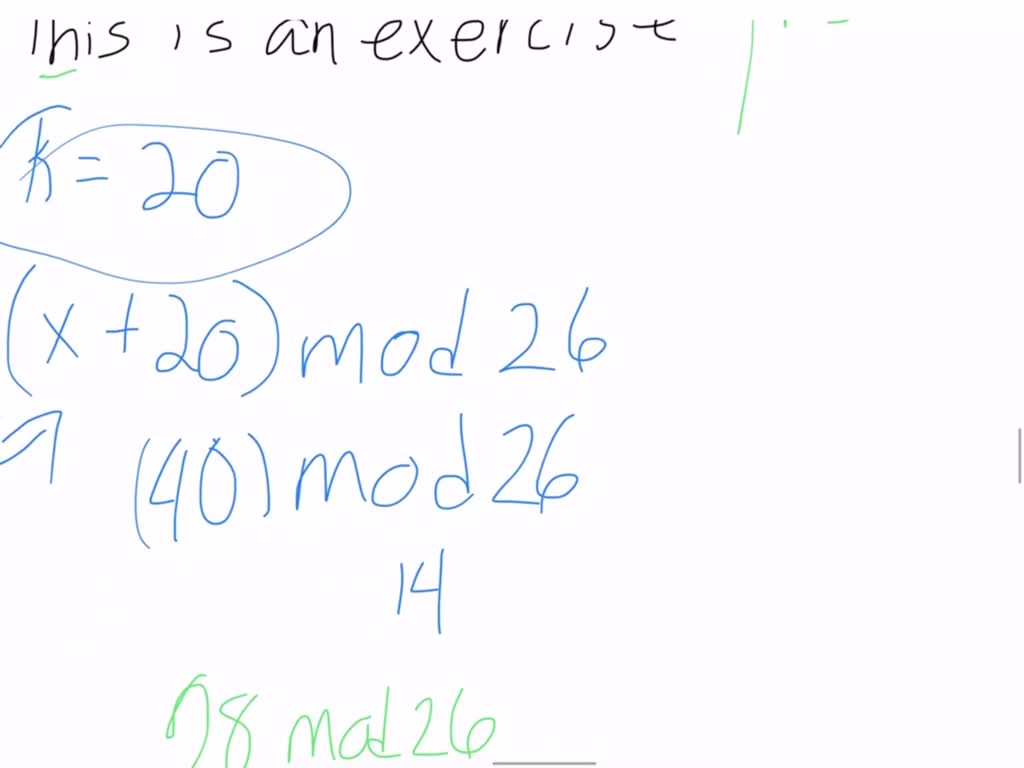 This is an exercise
k = 20
(x + 20) mod 26
(40) mod 26
14
28 mod 26